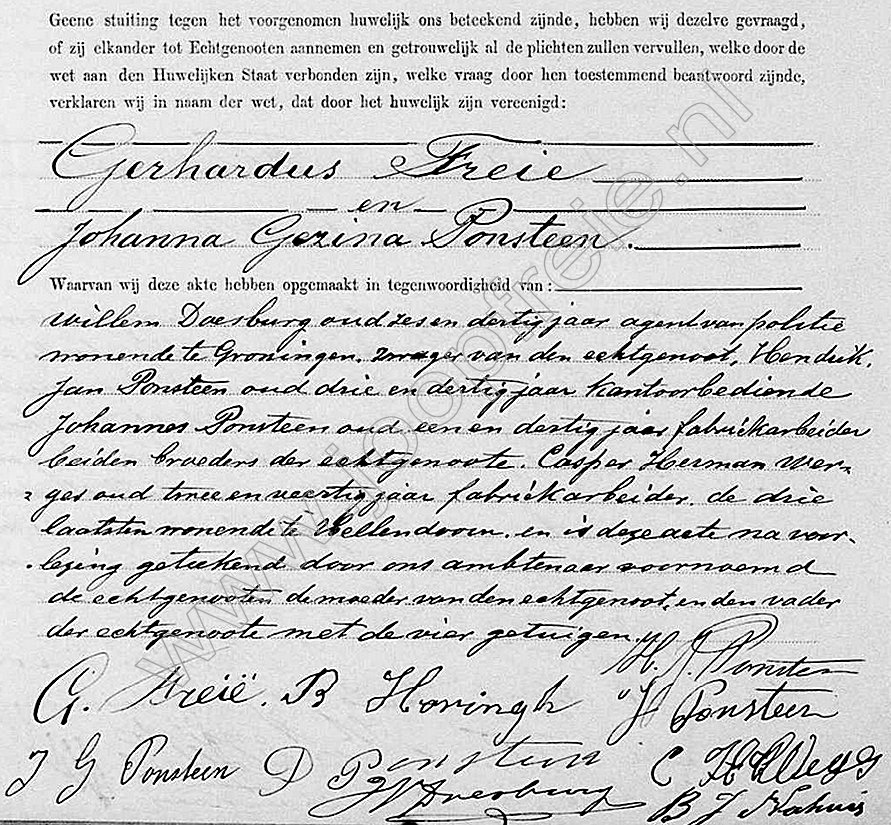 Geene stuiting tegen het voorgenomen huwelijk ons beteekend zijnde, hebben wij dezelve gevraagd,
of zij elkander tot Echtgenooten aannemen en getrouwelijk al de plichten zullen vervullen, welke door de
wet aan den Huwelijken Staat verbonden zijn, welke vraag door hen toestemmend beantwoord zijnde,
verklaren wij in naam der wet, dat door het huwelijk zijn vereenigd:
Gerhardus Freie
en
Johanna Gezina Ponsteen.
Waarvan wij deze akte hebben opgemaakt in tegenwoordigheid van:
Willem Doesburg oud zes en dertig jaar agent van politie
wonende te Groningen, zwager van den echtgenoot, Hendrik
Jan Ponsteen oud drie en dertig jaar kantoorbediende
Johannes Ponsteen oud een en dertig jaar fabriekarbeider
beiden broeders der echtgenoote. Casper Herman Wer-
ger oud twee en veertig jaar fabriekarbeider, de drie
laatsten wonende te Hellendoorn, en is deze acte na voor-
lezing geteekend door ons ambtenaar voornoemd
de echtgenooten de moeder van den echtgenoot, en den vader
der echtgenoote met de vier getuigen.
H. J. Ponsteen
G. Freië. B Hovingh J Ponsteen
J G Ponsteen D Ponsteen C H Werger
W Doesburg
B J Nahuis
www.joopfreie.nl